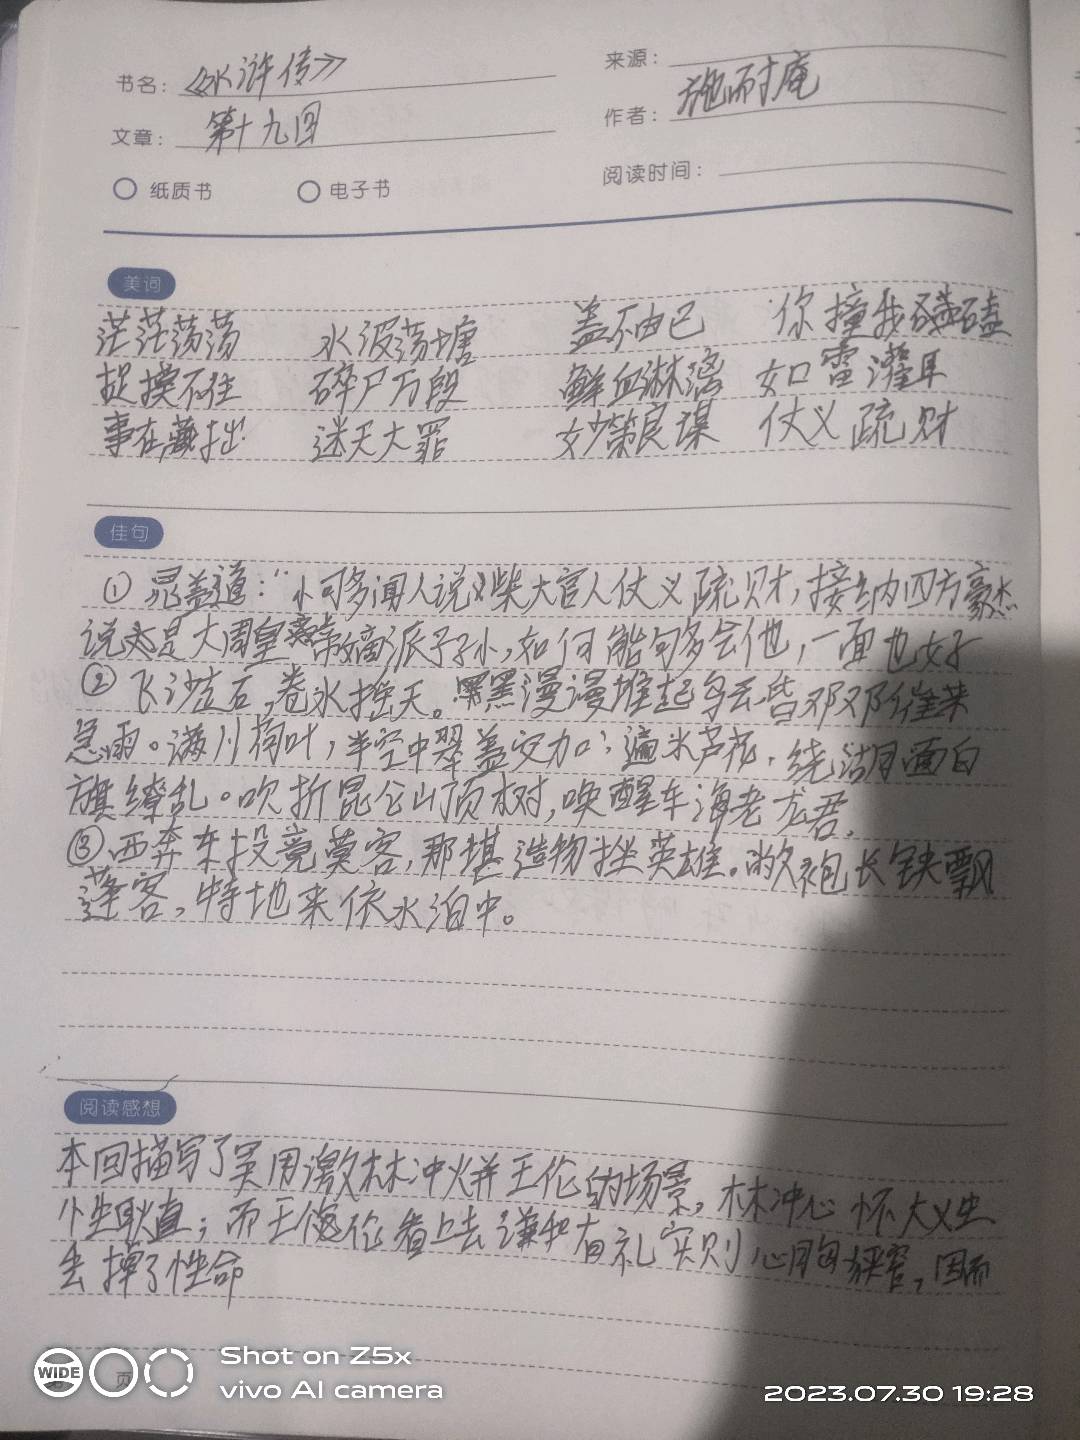 书名: 《水浒传》
来源:
文章: 第十九回
作者: 施耐庵
纸质书 电子书
阅读时间:
美词
茫茫荡荡 水波荡塘 盖不由已 你撞我磕
捉摸不住 碎尸万段 鲜血淋漓 如雷灌耳
事在藏拙 迷天大罪 妙策良谋 仗义疏财
佳句
① 晁盖道:“小可多闻人说柴大官人仗义疏财,接纳四方豪杰
说是大周皇帝嫡派子孙,如何能够多会他,一面也好
② 飞沙走石,卷水摇天。黑漫漫堆起乌云昏邓邓催来
急雨。满川荷叶,半空中翠盖交加;遍水芦花,绕湖面白
旗缭乱。吹折昆仑山顶树,唤醒东海老龙君。
③西奔东投竟莫容,那堪造物挫英雄。敝袍长铗飘
蓬客,特地来依水泊中。
阅读感想
本回描写了吴用激林冲火并王伦的场景,林冲心怀大义生
性耿直;而王伦看上去谦和有礼实则心胸狭窄,因而
丢掉了性命
WIDE
页
Shot on Z5x
vivo AI camera
2023.07.30 19:28